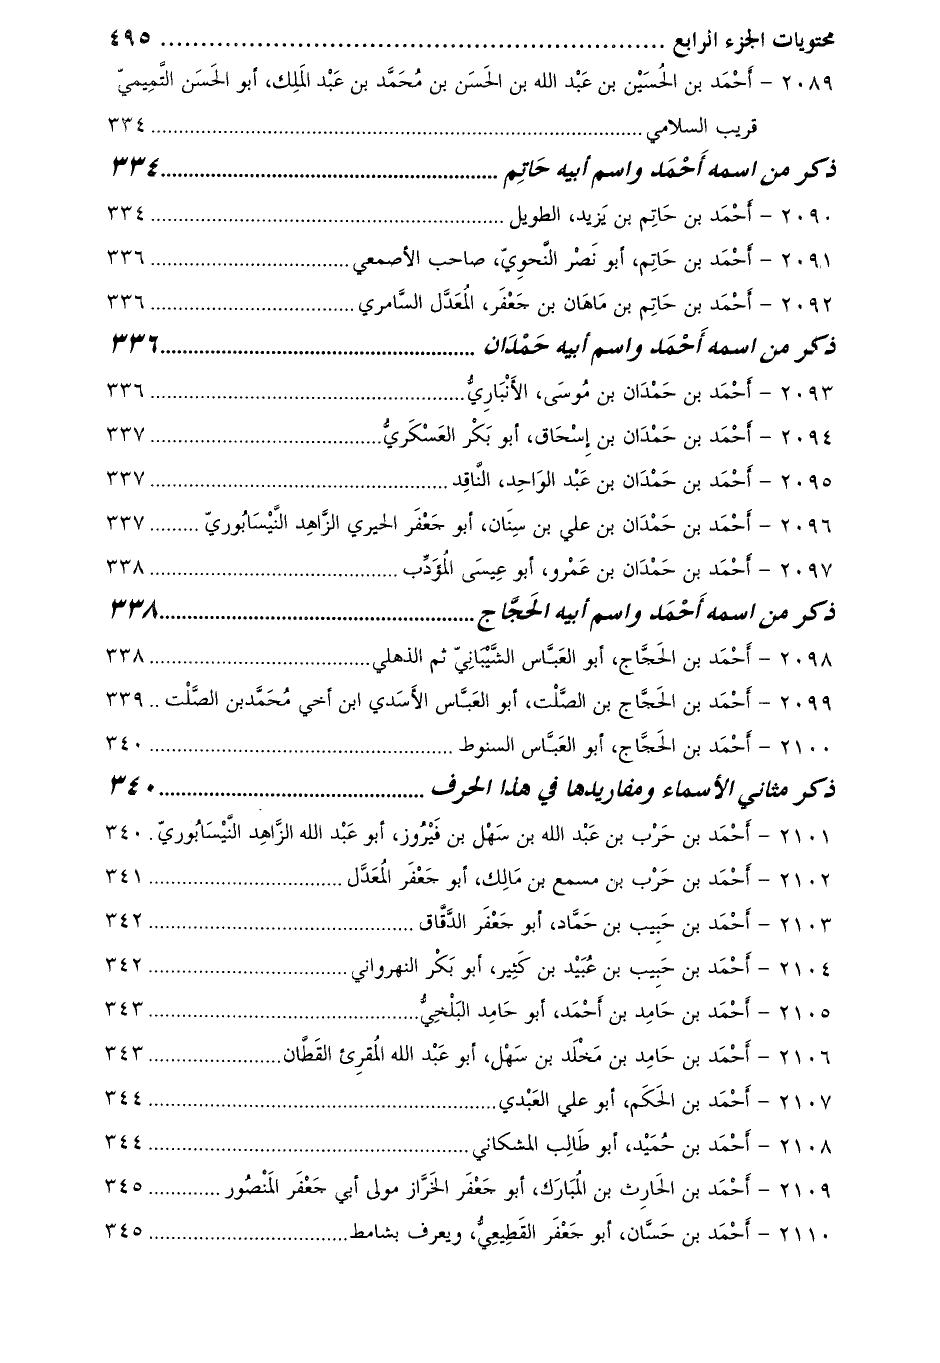 محتويات الجزء الرابع ................................................................ ٤٩٥
٢٠٨٩ – أَحْمَد بن الحُسَيْن بن عَبْد الله بن الحَسَن بن مُحَمَّد بن عَبْد المَلِك، أبو الحَسَن التَّمِيمِيّ
قريب السلامي .................................................................... ٣٣٤
ذكر من اسمه أَحْمَد واسم أبيه حَاتِم ............................................. ٣٣٤
٢٠٩٠ – أَحْمَد بن حَاتِم بن يَزِيد، الطويل ............................................. ٣٣٤
٢٠٩١ – أَحْمَد بن حَاتِم، أبو نَصْر النَّحوِيّ، صاحب الأصمعي ............................. ٣٣٦
٢٠٩٢ – أَحْمَد بن حَاتِم بن مَاهَان بن جَعْفَر، المُعَدَّل السَّامري ............................. ٣٣٦
ذكر من اسمه أَحْمَد واسم أبيه حَمْدَان ............................................. ٣٣٦
٢٠٩٣ – أَحْمَد بن حَمْدَان بن مُوسَى، الأَنْبَارِيُّ ............................................. ٣٣٦
٢٠٩٤ – أَحْمَد بن حَمْدَان بن إسْحَاق، أبو بَكْر العَسْكَرِيُّ ................................. ٣٣٧
٢٠٩٥ – أَحْمَد بن حَمْدَان بن عَبْد الوَاحِد، النَّاقِد ........................................... ٣٣٧
٢٠٩٦ – أَحْمَد بن حَمْدَان بن علي بن سِنَان، أبو جَعْفَر الحيري الزَّاهِد النَّيْسَابُوريّ ......... ٣٣٧
٢٠٩٧ – أَحْمَد بن حَمْدَان بن عَمْرو، أبو عِيسَى المُؤَدِّب ................................... ٣٣٨
ذكر من اسمه أَحْمَد واسم أبيه الحَجَّاج ............................................. ٣٣٨
٢٠٩٨ – أَحْمَد بن الحَجَّاج، أبو العَبَّاس الشَّيْبَانِيّ ثم الذهلي ............................... ٣٣٨
٢٠٩٩ – أَحْمَد بن الحَجَّاج بن الصَّلْت، أبو العَبَّاس الأَسَدي ابن أخي مُحَمَّدبن الصَّلْت .. ٣٣٩
٢١٠٠ – أَحْمَد بن الحَجَّاج، أبو العَبَّاس السنوط ........................................... ٣٤٠
ذكر مثاني الأسماء ومفاريدها في هذا الحرف ....................................... ٣٤٠
٢١٠١ – أَحْمَد بن حَرْب بن عَبْد الله بن سَهْل بن فَيْرُوز، أبو عَبْد الله الزَّاهِد النَّيْسَابُوريّ . ٣٤٠
٢١٠٢ – أَحْمَد بن حَرْب بن مسمع بن مَالِك، أبو جَعْفَر المُعَدَّل ............................. ٣٤١
٢١٠٣ – أَحْمَد بن حَبِيب بن حَمَّاد، أبو جَعْفَر الدَّقَّاق ..................................... ٣٤٢
٢١٠٤ – أَحْمَد بن حَبِيب بن عُبَيْد بن كَثِير، أبو بَكْر النهرواني ............................. ٣٤٢
٢١٠٥ – أَحْمَد بن حَامِد بن أَحْمَد، أبو حَامِد البَلْخِيُّ ....................................... ٣٤٣
٢١٠٦ – أَحْمَد بن حَامِد بن مَخْلَد بن سَهْل، أبو عَبْد الله المُقرئ القَطَّان ................... ٣٤٣
٢١٠٧ – أَحْمَد بن الحَكَم، أبو علي العَبْدي ................................................. ٣٤٤
٢١٠٨ – أَحْمَد بن حُمَيْد، أبو طَالِب المشكاني ............................................. ٣٤٤
٢١٠٩ – أَحْمَد بن الحَارِث بن المُبَارَك، أبو جَعْفَر الخَرَّاز مولى أبي جَعْفَر المَنْصُور ........... ٣٤٥
٢١١٠ – أَحْمَد بن حَسَّان، أبو جَعْفَر القَطِيعِيُّ، ويعرف بشامط ............................. ٣٤٥